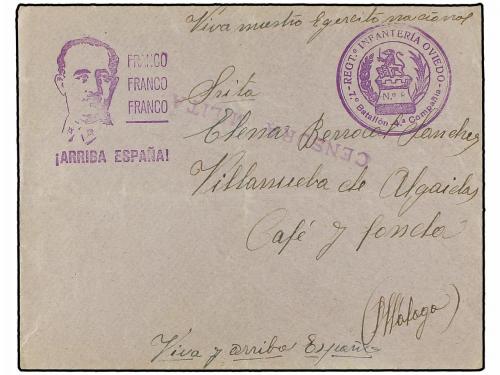 Viva nuestro Egercito nacional
FRANCO
FRANCO
FRANCO
¡ARRIBA ESPAÑA!
REGTº INFANTERÍA OVIEDO
Nº 8
7º Batallón 4ª Compañía
CENSURA MILITA
Srita
Elena Berrocal Sanchez
Villanueba de Algaidas
Café y fonda
(Málaga)
Viva y arriba España